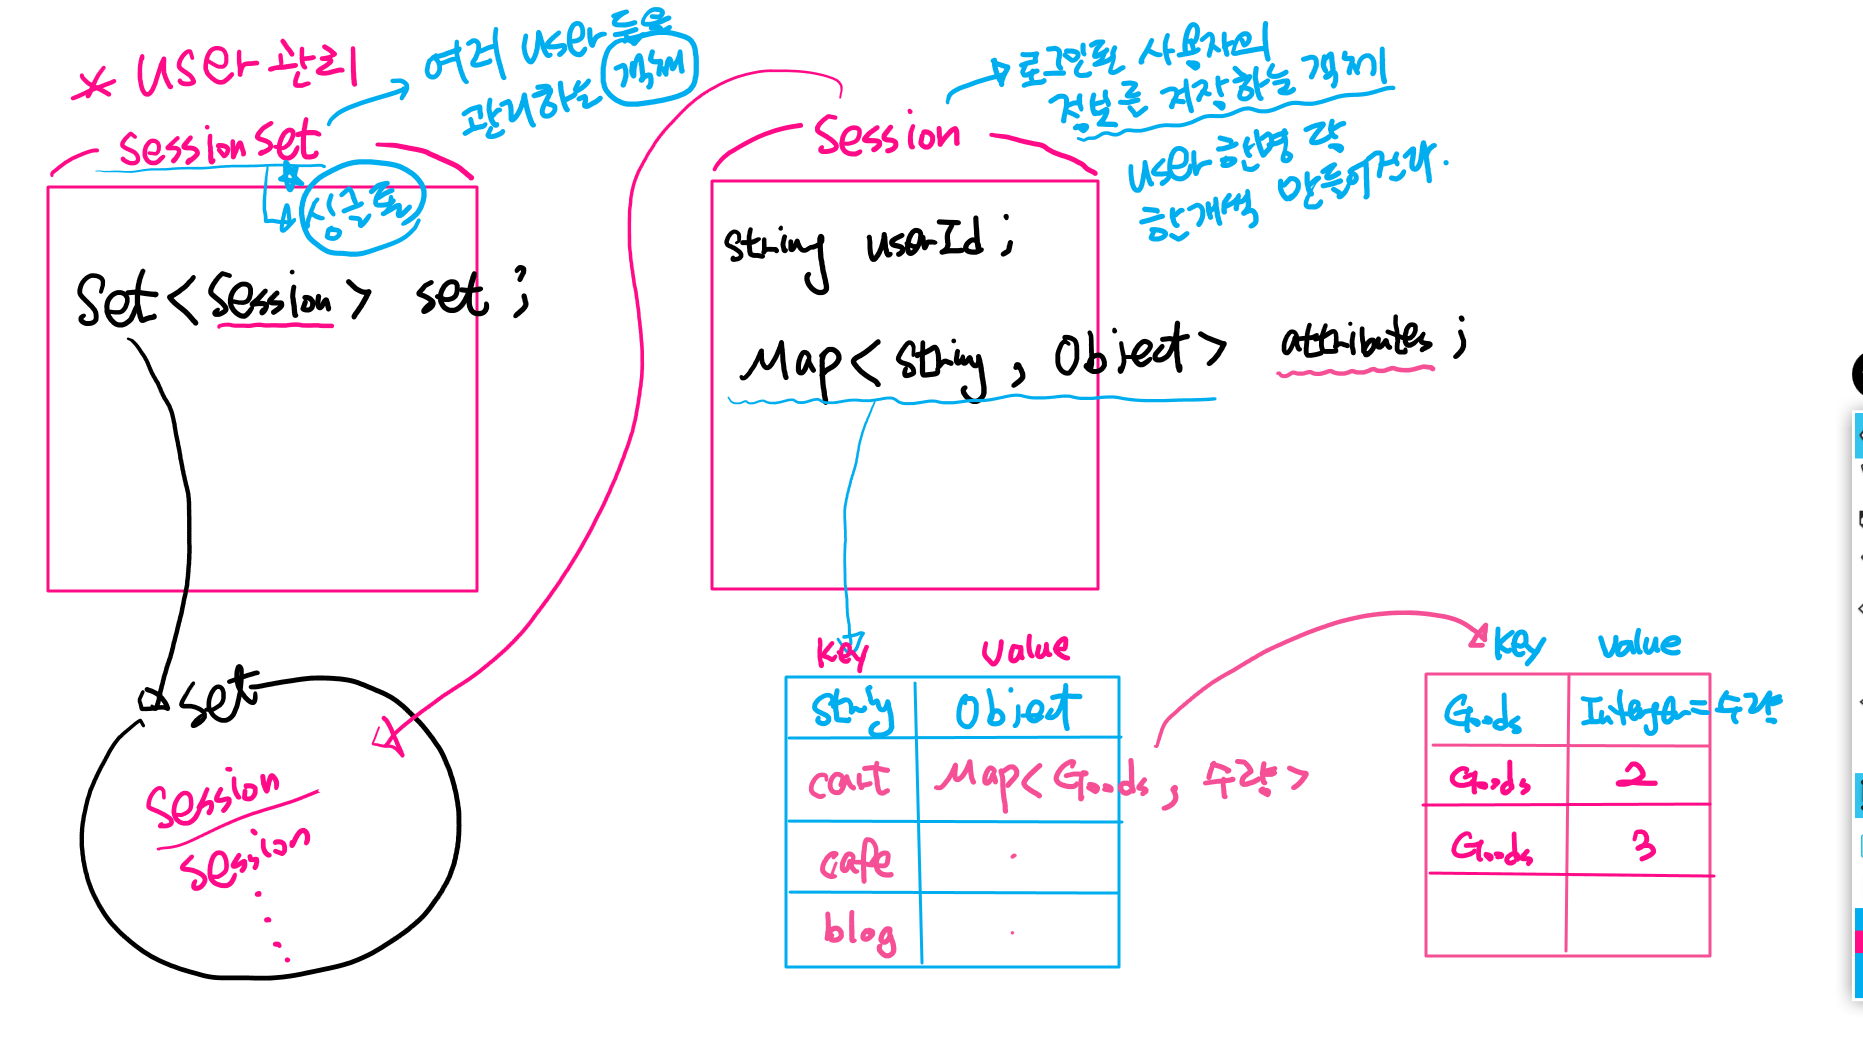 * user 관리
여러 user들을
관리하는 객체
Session Set
싱글톤
Set<Session> set ;
Session
로그인된 사용자의
정보를 저장하는 객체
user 한명 당
한개씩 만들어진다.
String userId ;
Map<String, Object> attributes ;
set
Session
Session
key value
String Object
cart Map<Goods, 수량>
cafe
blog
key value
Goods Integer=수량
Goods 2
Goods 3